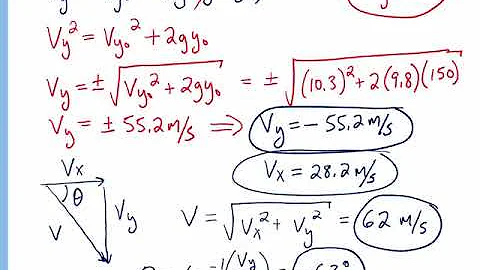 Vy² = Vy₀² + 2gy₀
Vy = ±√(Vy₀² + 2gy₀) = ±√((10.3)² + 2(9.8)(150))
Vy = ± 55.2 m/s ⟹ Vy = - 55.2 m/s
Vx = 28.2 m/s
Vx
θ
V
Vy
V = √(Vx² + Vy²) = 62 m/s